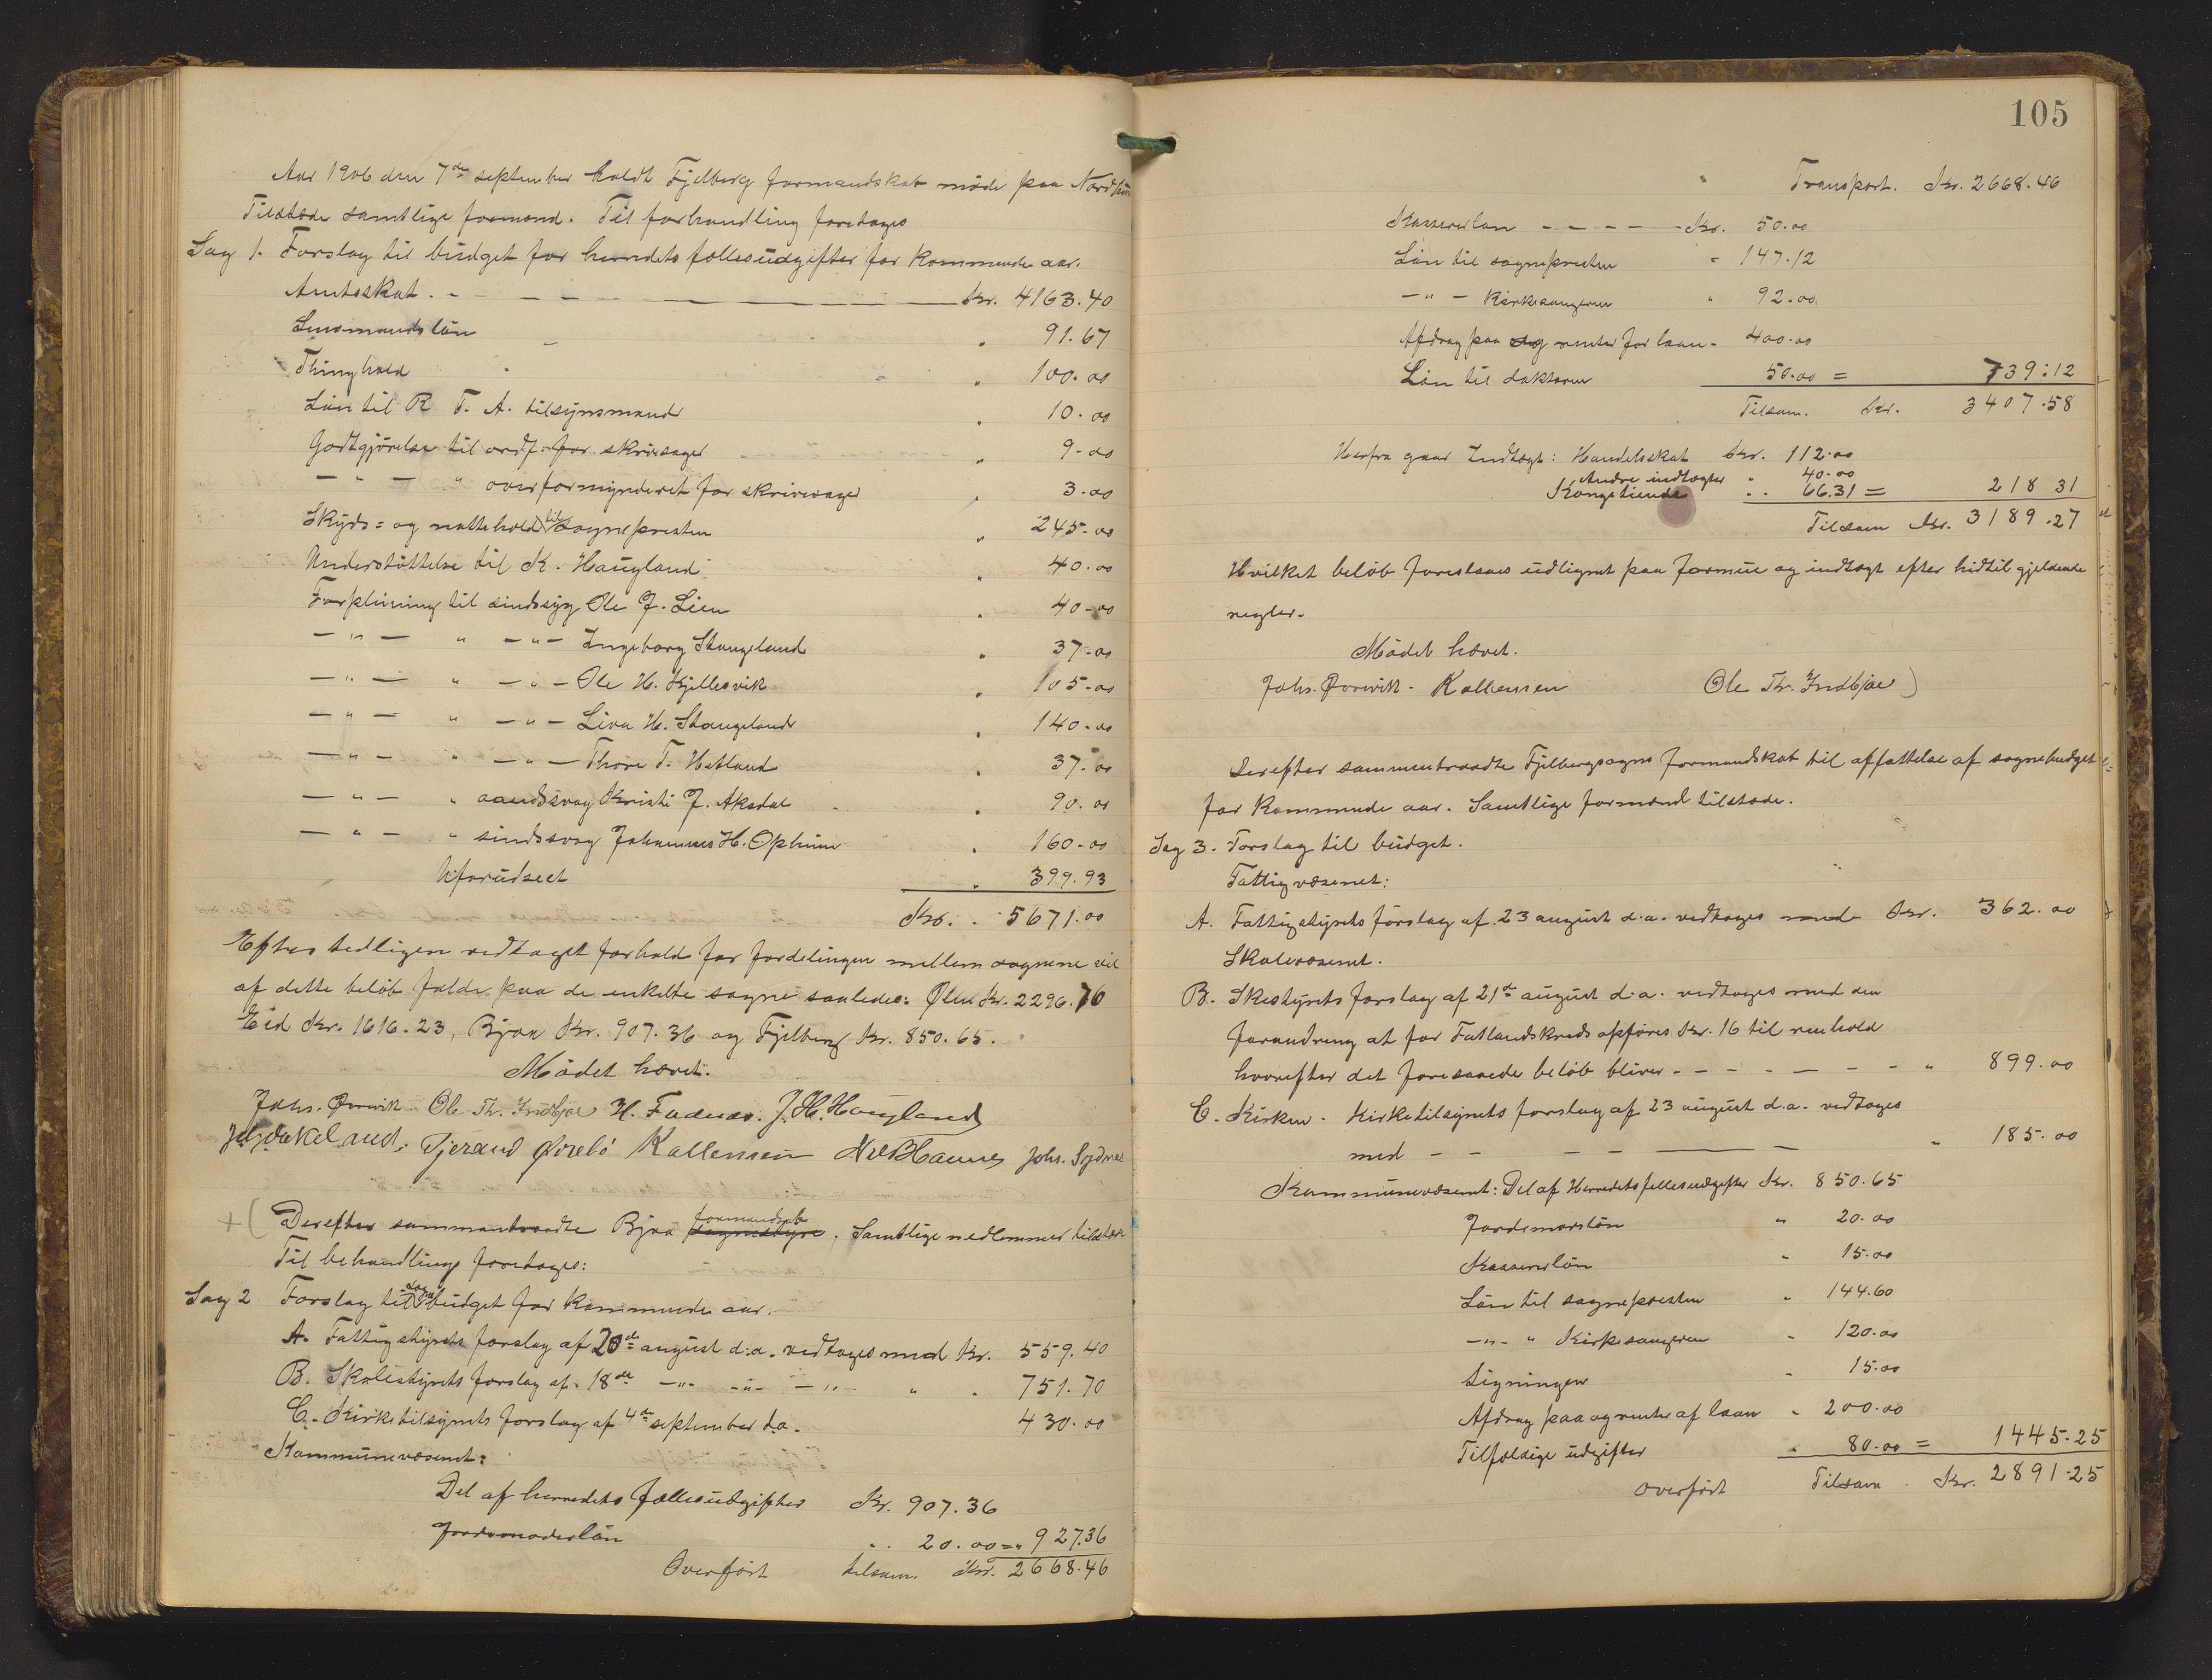 Aar 1906 den 7de september holdt Fjelberg formandskab møde paa
Tilstede samtlige formænd. Til forhandling foretoges
Sag 1. Forslag til budget for herredets fællesudgifter for kommende aar.
Amtsskat. - - - - Kr. 4163.40
Lensmandsløn " 91.67
Thinghold " 100.00
Løn til R. T. A. tilsynsmand " 10.00
Godtgjørelse til ordf. for skrivesager " 9.00
— " — " overformynderiet for skrivesager " 3.00
Skyds= og nattehold til sognepresten " 245.00
Understøttelse til K. Haugland " 40.00
Forpleining til sindssyg Ole J. Lien " 40.00
— " — " — " — Ingeborg Stangeland " 37.00
— " — " — " — Ole H. Kjillesvik " 105.00
— " — " — " — Liva H. Stangeland " 140.00
— " — " — " — Thore T. Hetland " 37.00
— " — " aandssvag Kristi J. Aksdal " 90.00
— " — " sindssvag Johannes H. Opheim " 160.00
Uforudseet " 399.93
Kr. 5671.00
Efter tidligere vedtaget forhold for fordelingen mellem sognene vil
af dette beløb falde paa de enkelte sogne saaledes: Ølen Kr. 2296.76
Eid Kr. 1616.23, Bjoa Kr. 907.36 og Fjelberg Kr. 850.65.
Mødet hævet.
Johs. Ørevik Ole Th. Indbjoe H. Fadnæs. J. H. Haugland
Tjerand Ørebø Kallensen Johs. Sydnes
+) Derefter sammentraadte Bjoa sognestyre formandskab. Samtlige medlemmer tilstede
Til behandling foretoges:
Sag 2 Forslag til sognebudget for kommende aar.
A. Fattigstyrets forslag af 20de august d.a. vedtoges med Kr. 559.40
B. Skolestyrets forslag af 18de — " — — " — — " — " " 751.70
C. Kirketilsynets forslag af 4de september d.a. 430.00
Kommunevæsenet:
Del af herredets fællesudgifter Kr. 907.36
Jordemoderløn " 20.00 = " 927.36
Overført tilsam. Kr. 2668.46
105
Transport. Kr. 2668.46
Kassererløn - - - - - Kr. 50.00
Løn til sognepresten " 147.12
— " — Kirkesangeren " 92.00
Afdrag paa og renter for laan - 400.00
Løn til doktoren 50.00 = 739.12
Tilsam. Kr. 3407.58
Herfra gaar Indtægt: Handelsskat Kr. 112.00
Andre indtægter " 40.00
Kongetiende " 66.31 = 218 31
Tilsam Kr. 3189.27
Hvilket beløb foreslaaes udlignet paa formue og indtægt efter hidtil gjeldende
regler.
Mødet hævet.
Johs. Ørevik - Kallensen Ole Th. Indbjoe)
Derefter sammentraadte Fjelbergsogns formandskab til affattelse af sognebudget
for kommende aar. Samtlige formænd tilstede.
Sag 3. Forslag til budget.
Fattigvæsenet:
A. Fattigstyrets forslag af 23 august d.a. vedtoges med Kr. 362.00
Skolevæsenet.
B. Skolestyrets forslag af 21de august d.a. vedtoges med den
forandring at for Fatlandskreds opføres Kr. 16 til renhold
hvorefter det foresaaede beløb bliver - - - - - - - " 899.00
C. Kirken. Kirketilsynets forslag af 23 august d.a. vedtoges
med - - - - — — " 185.00
Kommunevæsenet: Del af Herredets fællesudgifter Kr. 850.65
Jordemorsløn " 20.00
Kassererløn " 15.00
Løn til sognepresten " 144.60
— " — " Kirkesangeren " 120.00
Ligningen " 15.00
Afdrag paa og renter af laan " 200.00
Tilfældige udgifter " 80.00 = 1445.25
Overført Tilsam. Kr. 2891.25